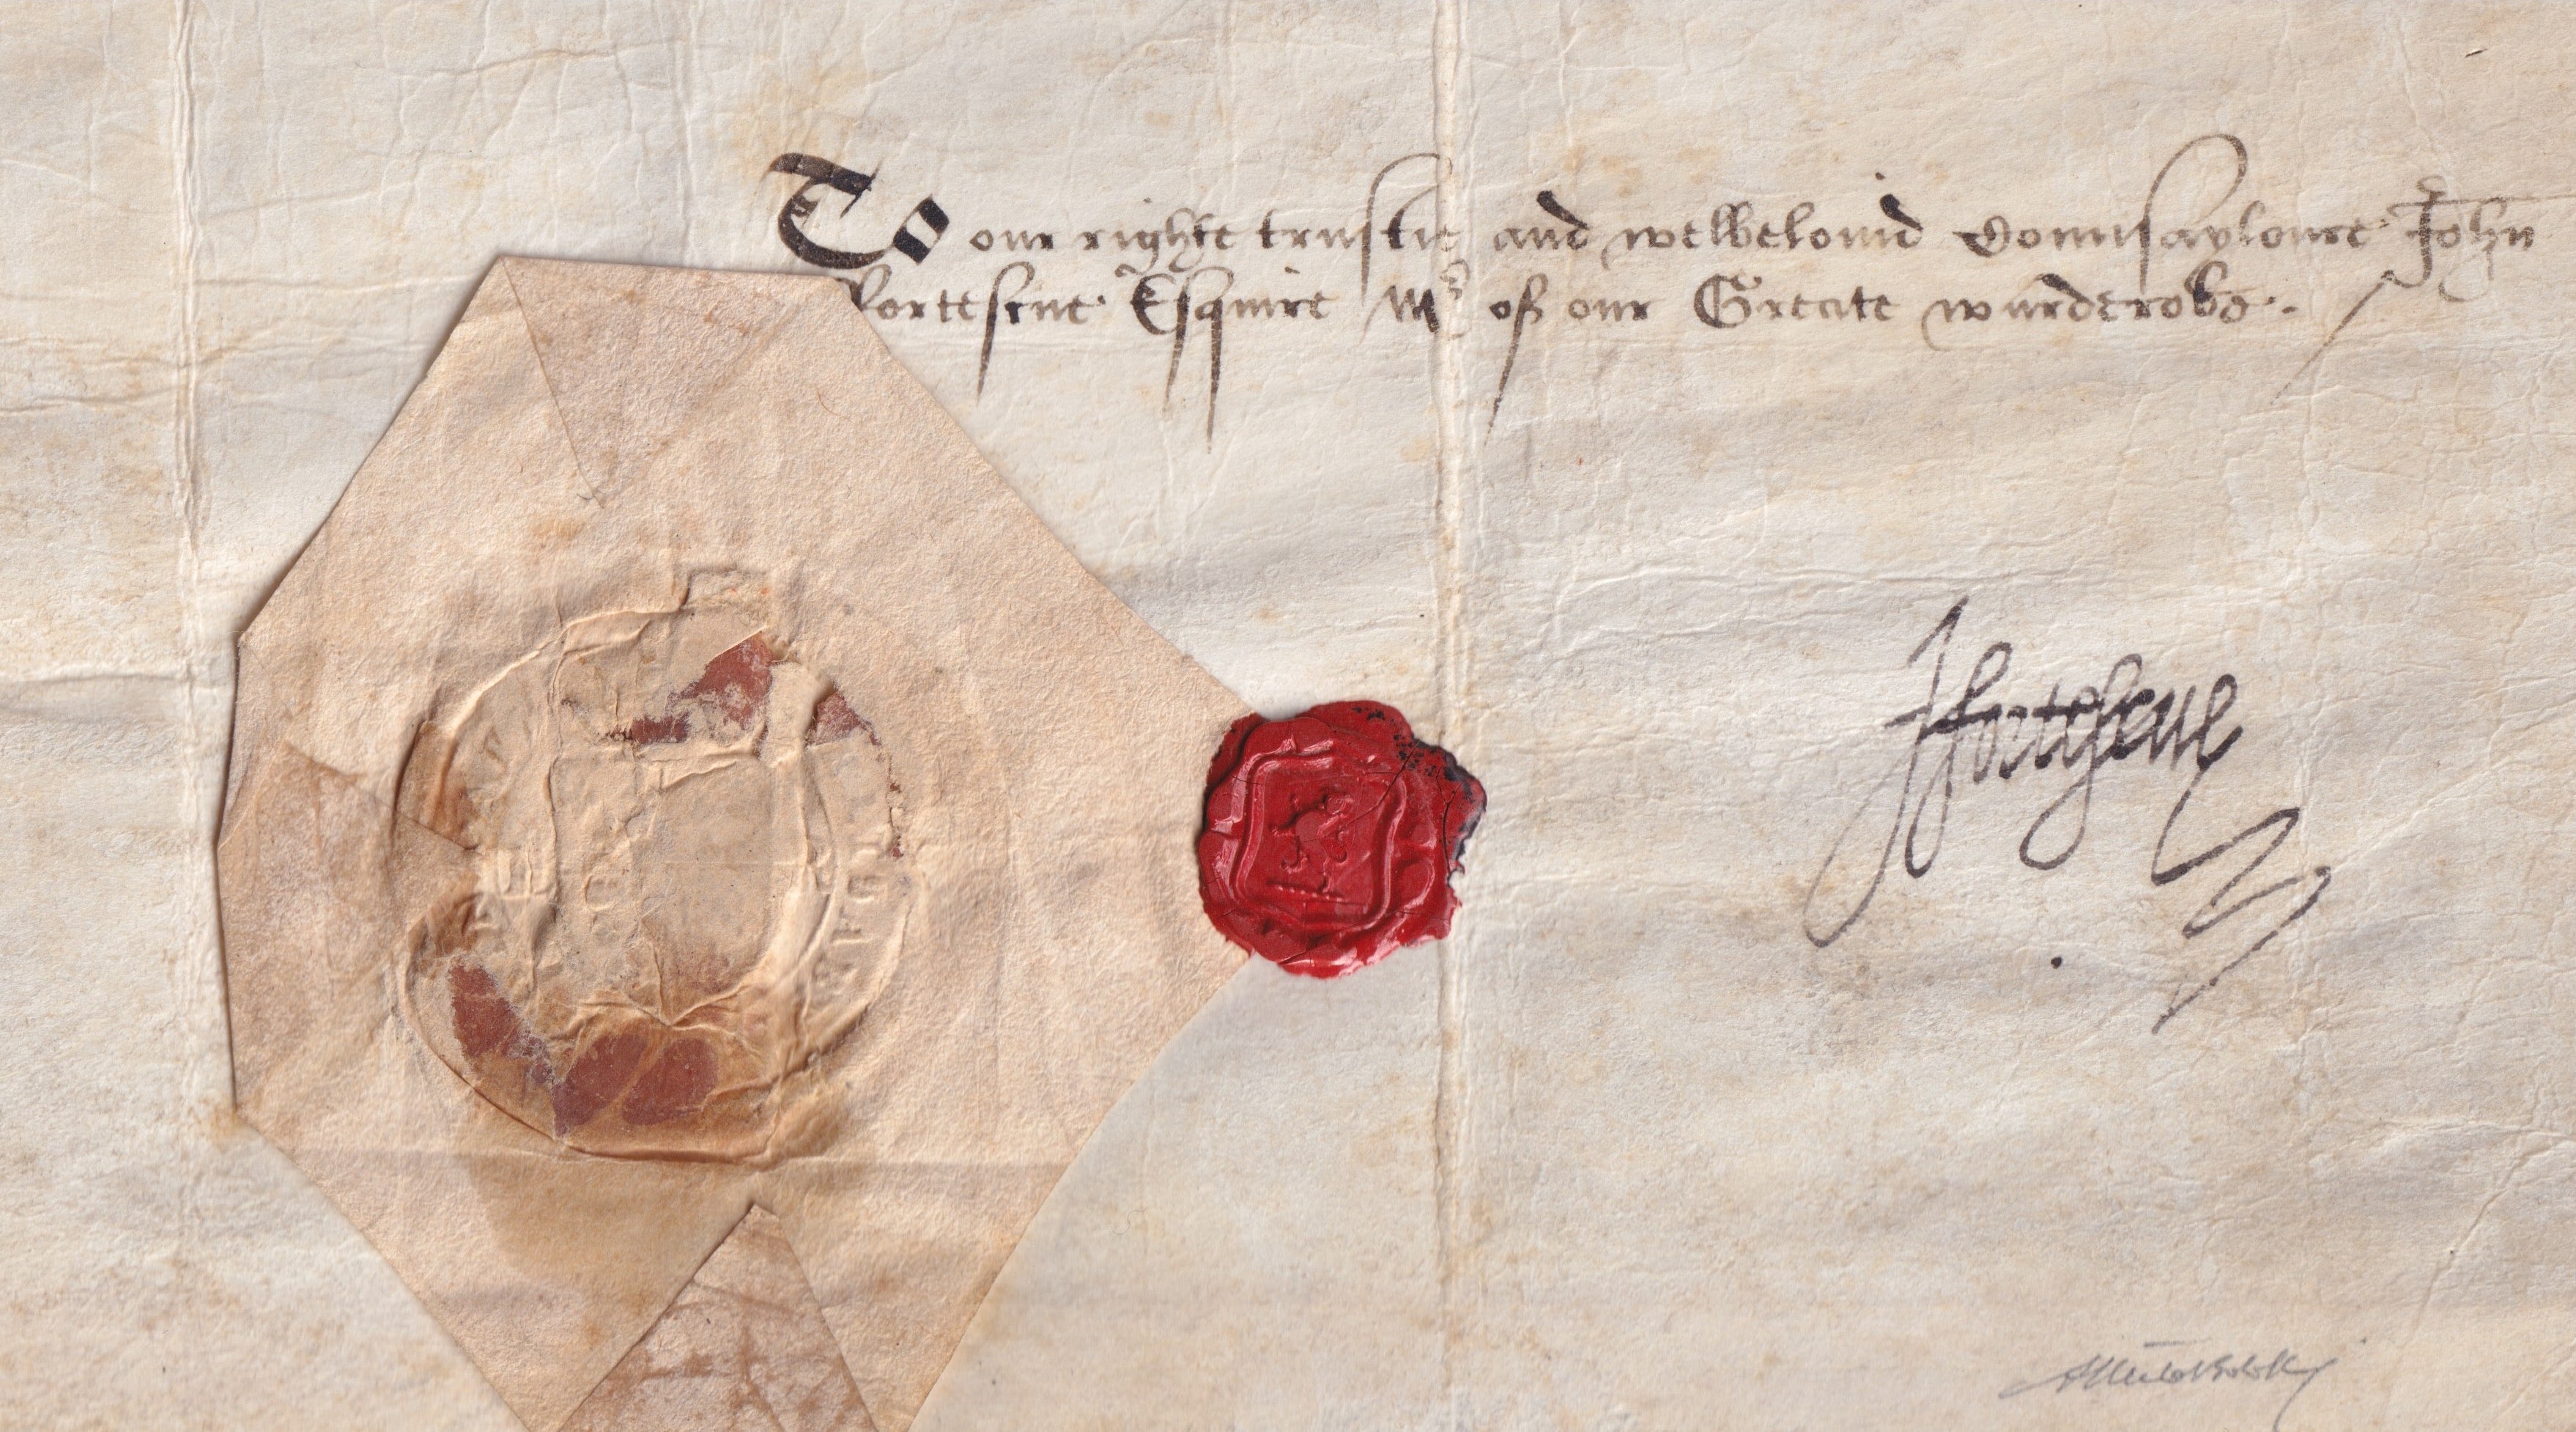 To our righte trustie and welbelouid Counsaylour John
ffortescue Esquire Mr of our Greate warderobe.
Jffortescue